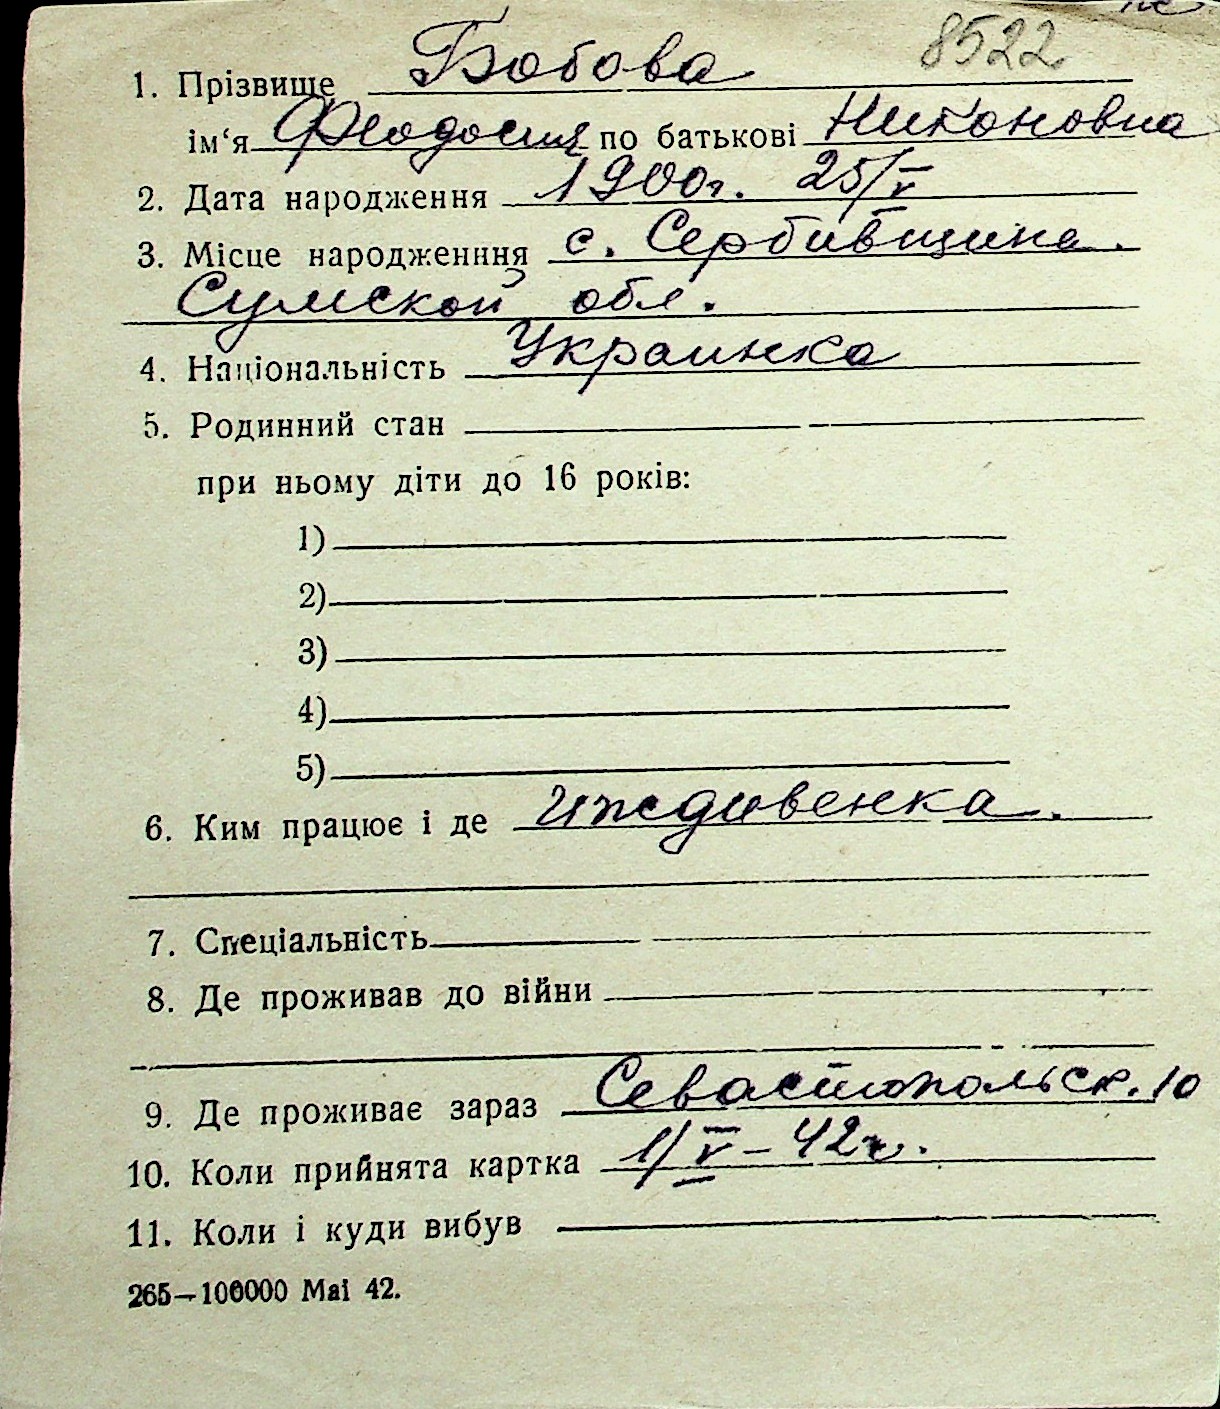 8522
1. Прізвище Бобова
ім‘я Феодосия по батькові Никоновна
2. Дата народження 1900г. 25/V
3. Місце народженння с. Сербивщина.
Сумской обл.
4. Національність Украинка
5. Родинний стан
при ньому діти до 16 років:
1)
2)
3)
4)
5)
6. Ким працює і де иждивенка.
7. Спеціальність
8. Де проживав до війни
9. Де проживає зараз Севастопольск. 10
10. Коли прийнята картка 1/V – 42г.
11. Коли і куди вибув
265—100000 Mai 42.